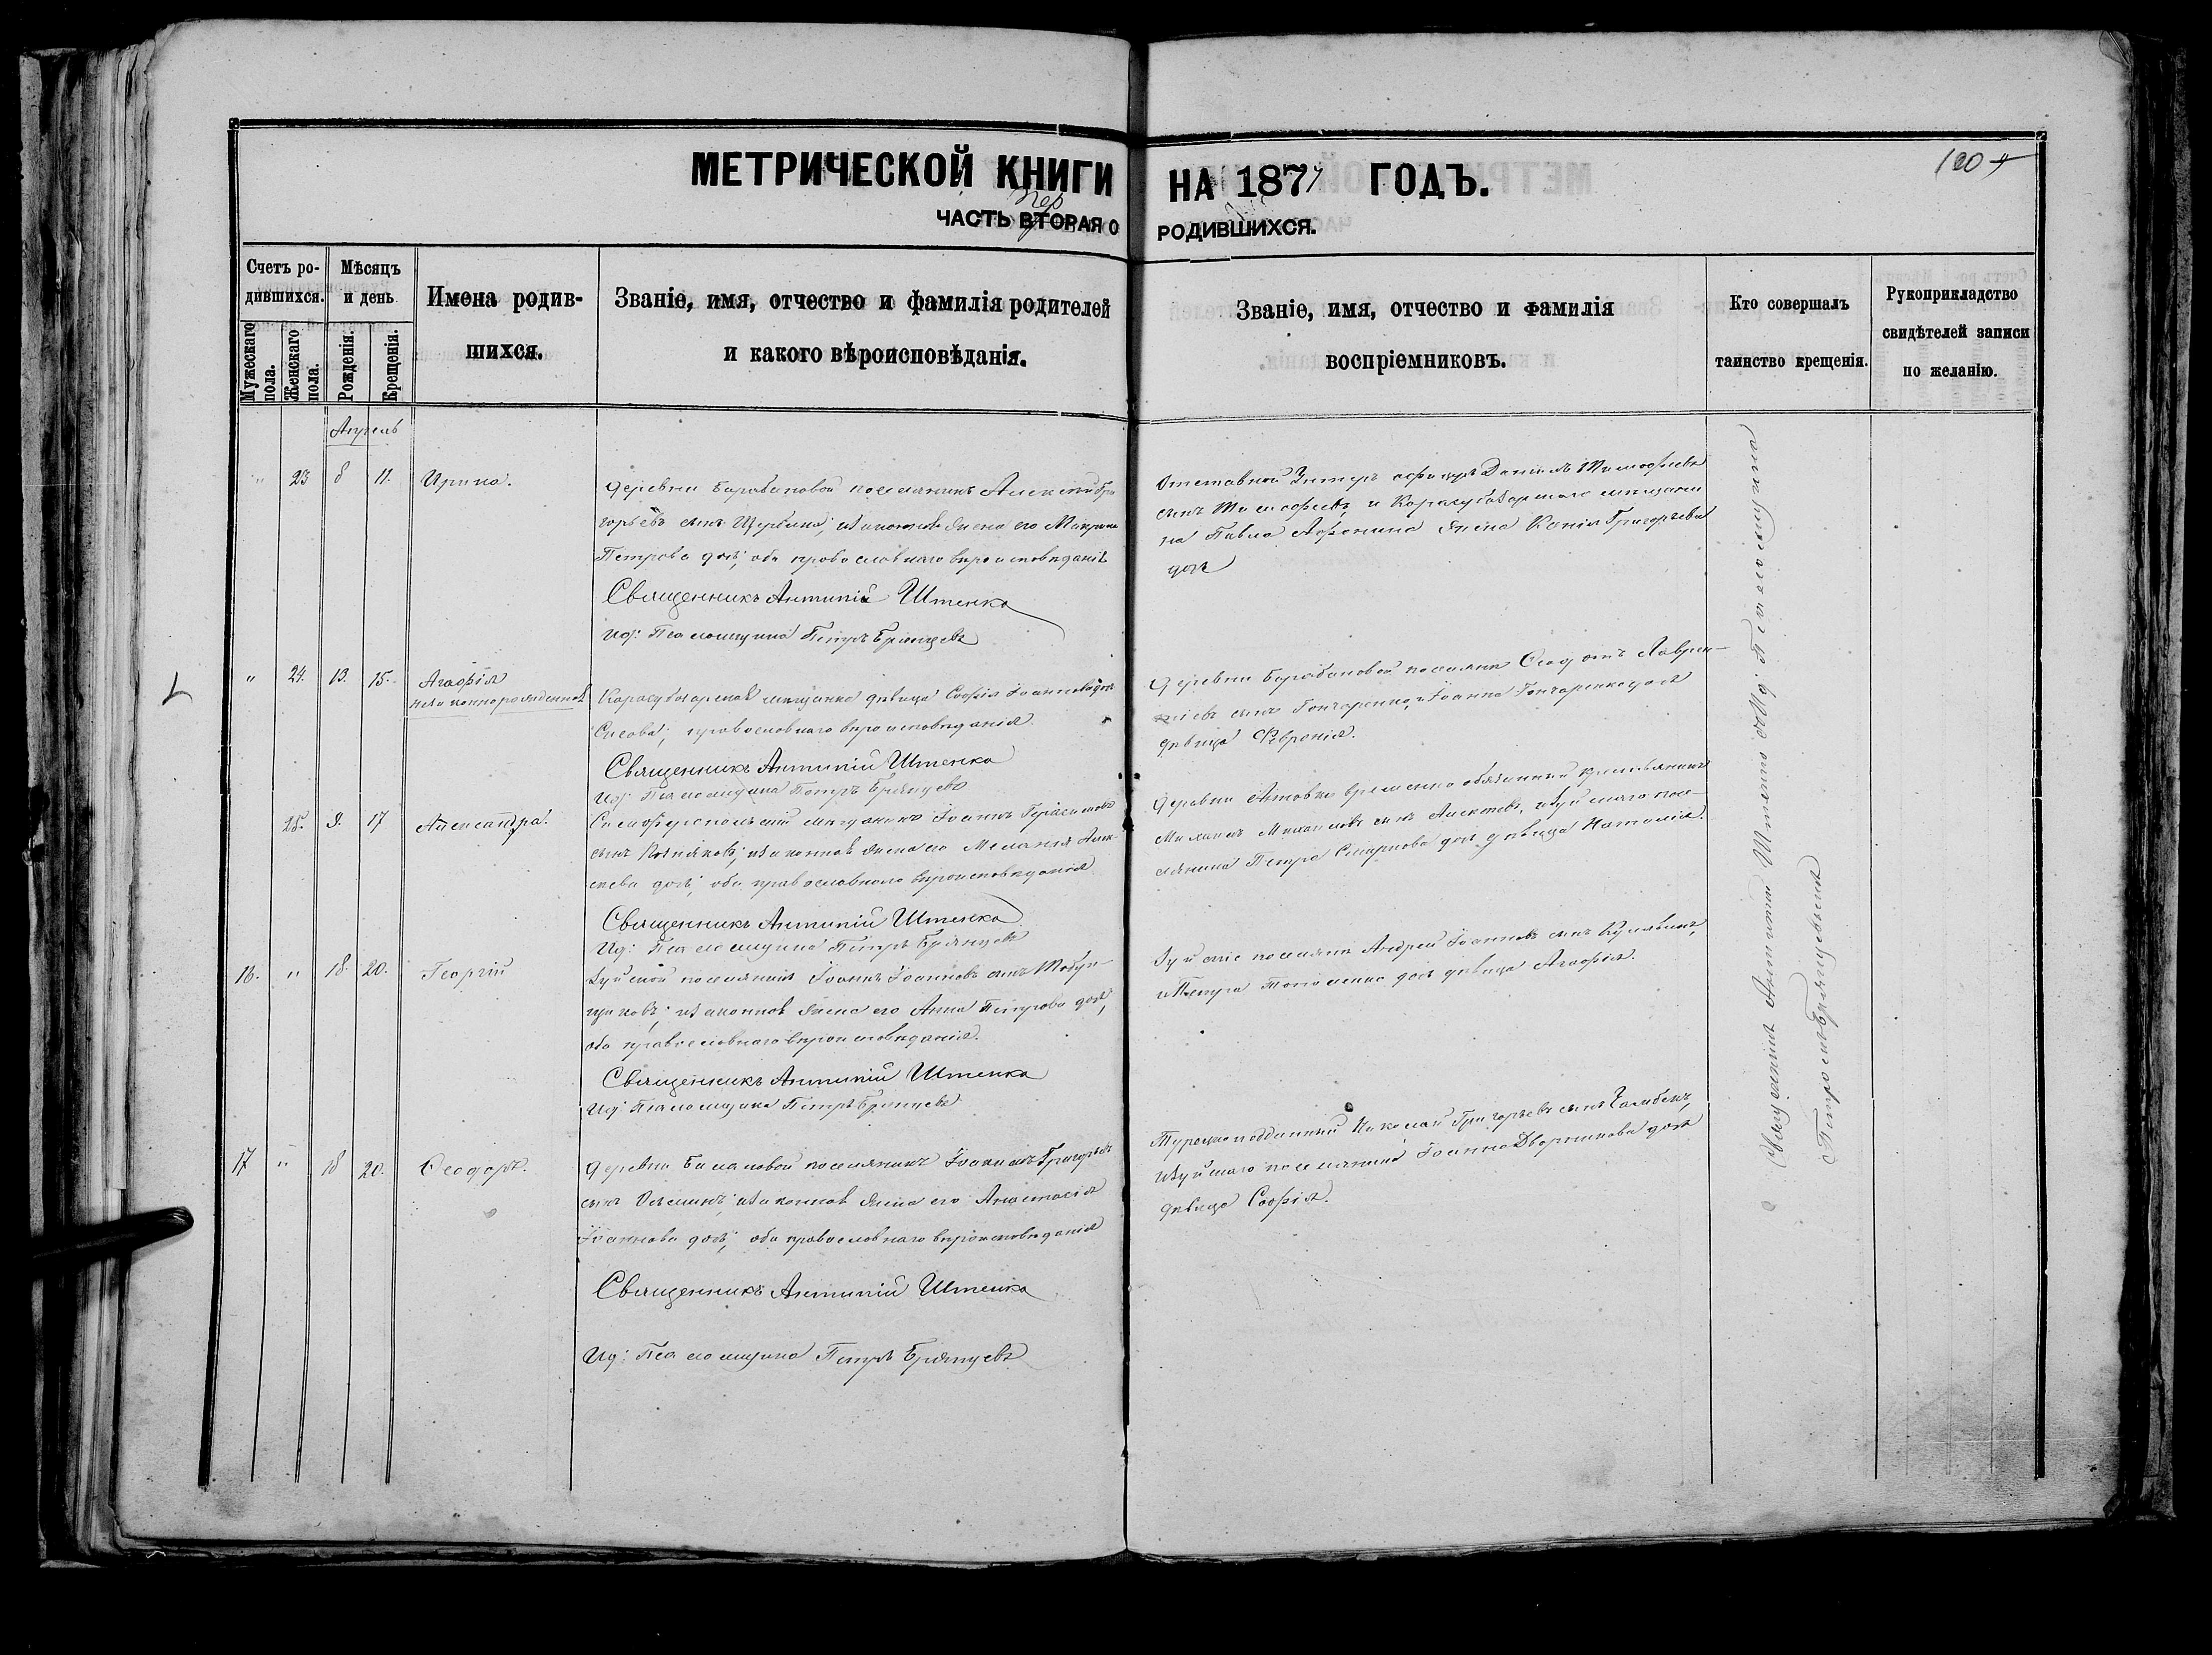 МЕТРИЧЕСКОЙ КНИГИ НА 1877 ГОДЪ.
120
ЧАСТЬ ВТОРАЯ О РОДИВШИХСЯ.
Пер
Счетъ родившихся.
Мужескаго пола.
Женскаго пола.
Мѣсяцъ и день
Рожденія.
Крещенія.
Имена родившихся.
Званіе, имя, отчество и фамилія родителей
и какого вѣроисповѣданія.
Званіе, имя, отчество и фамилія
воспріемниковъ.
Кто совершалъ
таинство крещенія.
Рукоприкладство
свидѣтелей записи
по желанію.
Апрель
" 23 8 11. Ирина.
Деревни Барабановой поселянинъ Алексѣй Гри
горьевъ сынъ Щербина, и законная жена его
Петрова дочь, оба православнаго вѣроисповѣданія
Священникъ Антипій Штенко
Ид: Псаломщика Петръ Брянцевъ
Отставной Унтеръ офицеръ Даніилъ Тимофѣевъ
сынъ Тимофѣевъ, и Карасубазарскаго мѣщани
на Павла Афонина жена Григорьева
дочь
" 24. 13. 15. Агафія
незаконнорожденная
Карасубазарская мѣщанка дѣвица Софія Іоаннова дочь
православнаго вѣроисповѣданія.
Священникъ Антипій Штенко
Ид: Псаломщика Петръ Брянцевъ
Деревни Барабановой поселяне Лаврен-
тіевъ сынъ Гончаренко, и Іоанна Гончаренко дочь
дѣвица Февронія.
25. 9. 17 Александра.
Симферопольскій мѣщанинъ Іоаннъ Герасимовъ
сынъ и законная жена его Меланія Алек-
сѣева дочь, оба православнаго вѣроисповѣданія
Священникъ Антипій Штенко
Ид: Псаломщика Петръ Брянцевъ
Деревни временно обязанный крестьянинъ
Михаилъ Михаиловъ сынъ Алексѣевъ, и Зуйскаго посе-
лянина Петра Смирнова дочь дѣвица Наталія.
16. " 18. 20. Георгій
Зуйской поселянинъ Іоаннъ Іоанновъ сынъ Табун-
щиковъ, и законная жена его Анна Петрова дочь,
оба православнаго вѣроисповѣданія.
Священникъ Антипій Штенко
Ид: Псаломщика Петръ Брянцевъ
Зуйскіе поселяне Андрей Іоанновъ сынъ
и Петра дочь дѣвица Агафія.
17 " 18 20. Ѳеодоръ.
Деревни поселянинъ Іоакимъ Григорьевъ
сынъ и законная жена его Анастасія
Іоаннова дочь, оба православнаго вѣроисповѣданія
Священникъ Антипій Штенко
Ид: Псаломщика Петръ Брянцевъ
Турецкоподданный Николай Григорьевъ сынъ
и Зуйскаго поселянина Іоанна Дворникова дочь
дѣвица Софія.
Священникъ Антипій Штенко съ Ид: Псаломщика
Петромъ Брянцевымъ